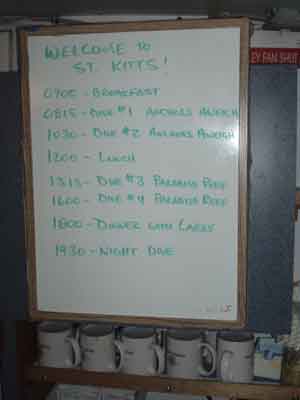 WELCOME TO
ST. KITTS!
0700 - BREAKFAST
0815 - DIVE #1 ANCHORS AWEIGH
1030 - DIVE #2 ANCHORS AWEIGH
1200 - LUNCH
1315 - DIVE #3 PARADISE REEF
1600 - DIVE #4 PARADISE REEF
1800 - DINNER WITH
1930 - NIGHT DIVE